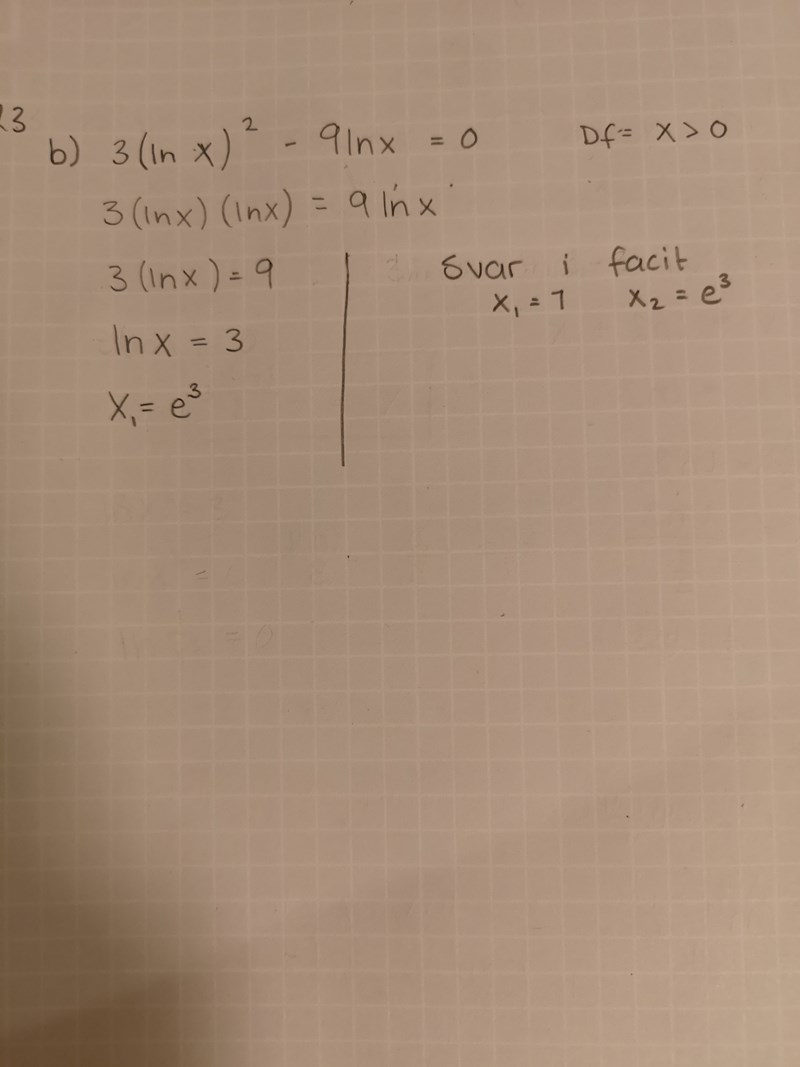 23
b) 3(ln x)² - 9lnx = 0 Df= x > 0
3(lnx)(lnx) = 9 lnx
3(lnx) = 9
lnx = 3
x₁ = e³
Svar i facit
x₁ = 1 x₂ = e³